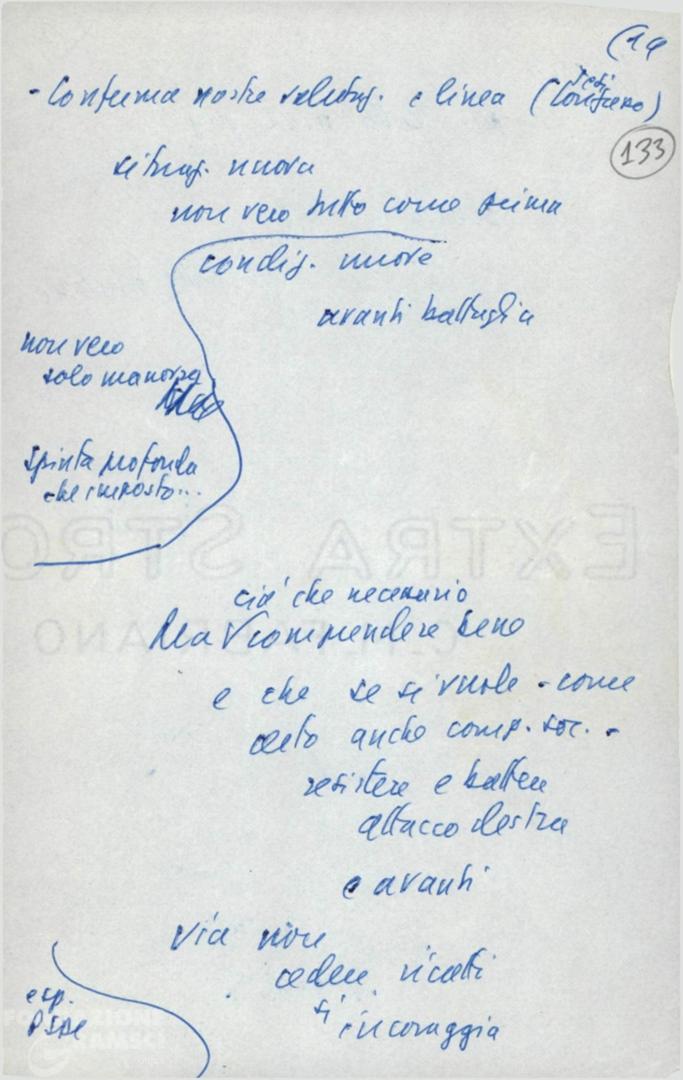 (14
133
- Conferma nostre valutaz. e linea (
situaz. nuova
non vero tutto come prima
condiz. nuove
avanti battaglia
non vero
solo manovra
spinta profonda
che imposto...
ciò che necessario
Ma V comprendere bene
e che se si vuole - come
detto anche comp. soc. -
resistere e battere
attacco destra
e avanti
via non
cedere ricatti
si incoraggia
esp.
EXTRA STRO
FABRIANO
FONDAZIONE
GRAMSCI